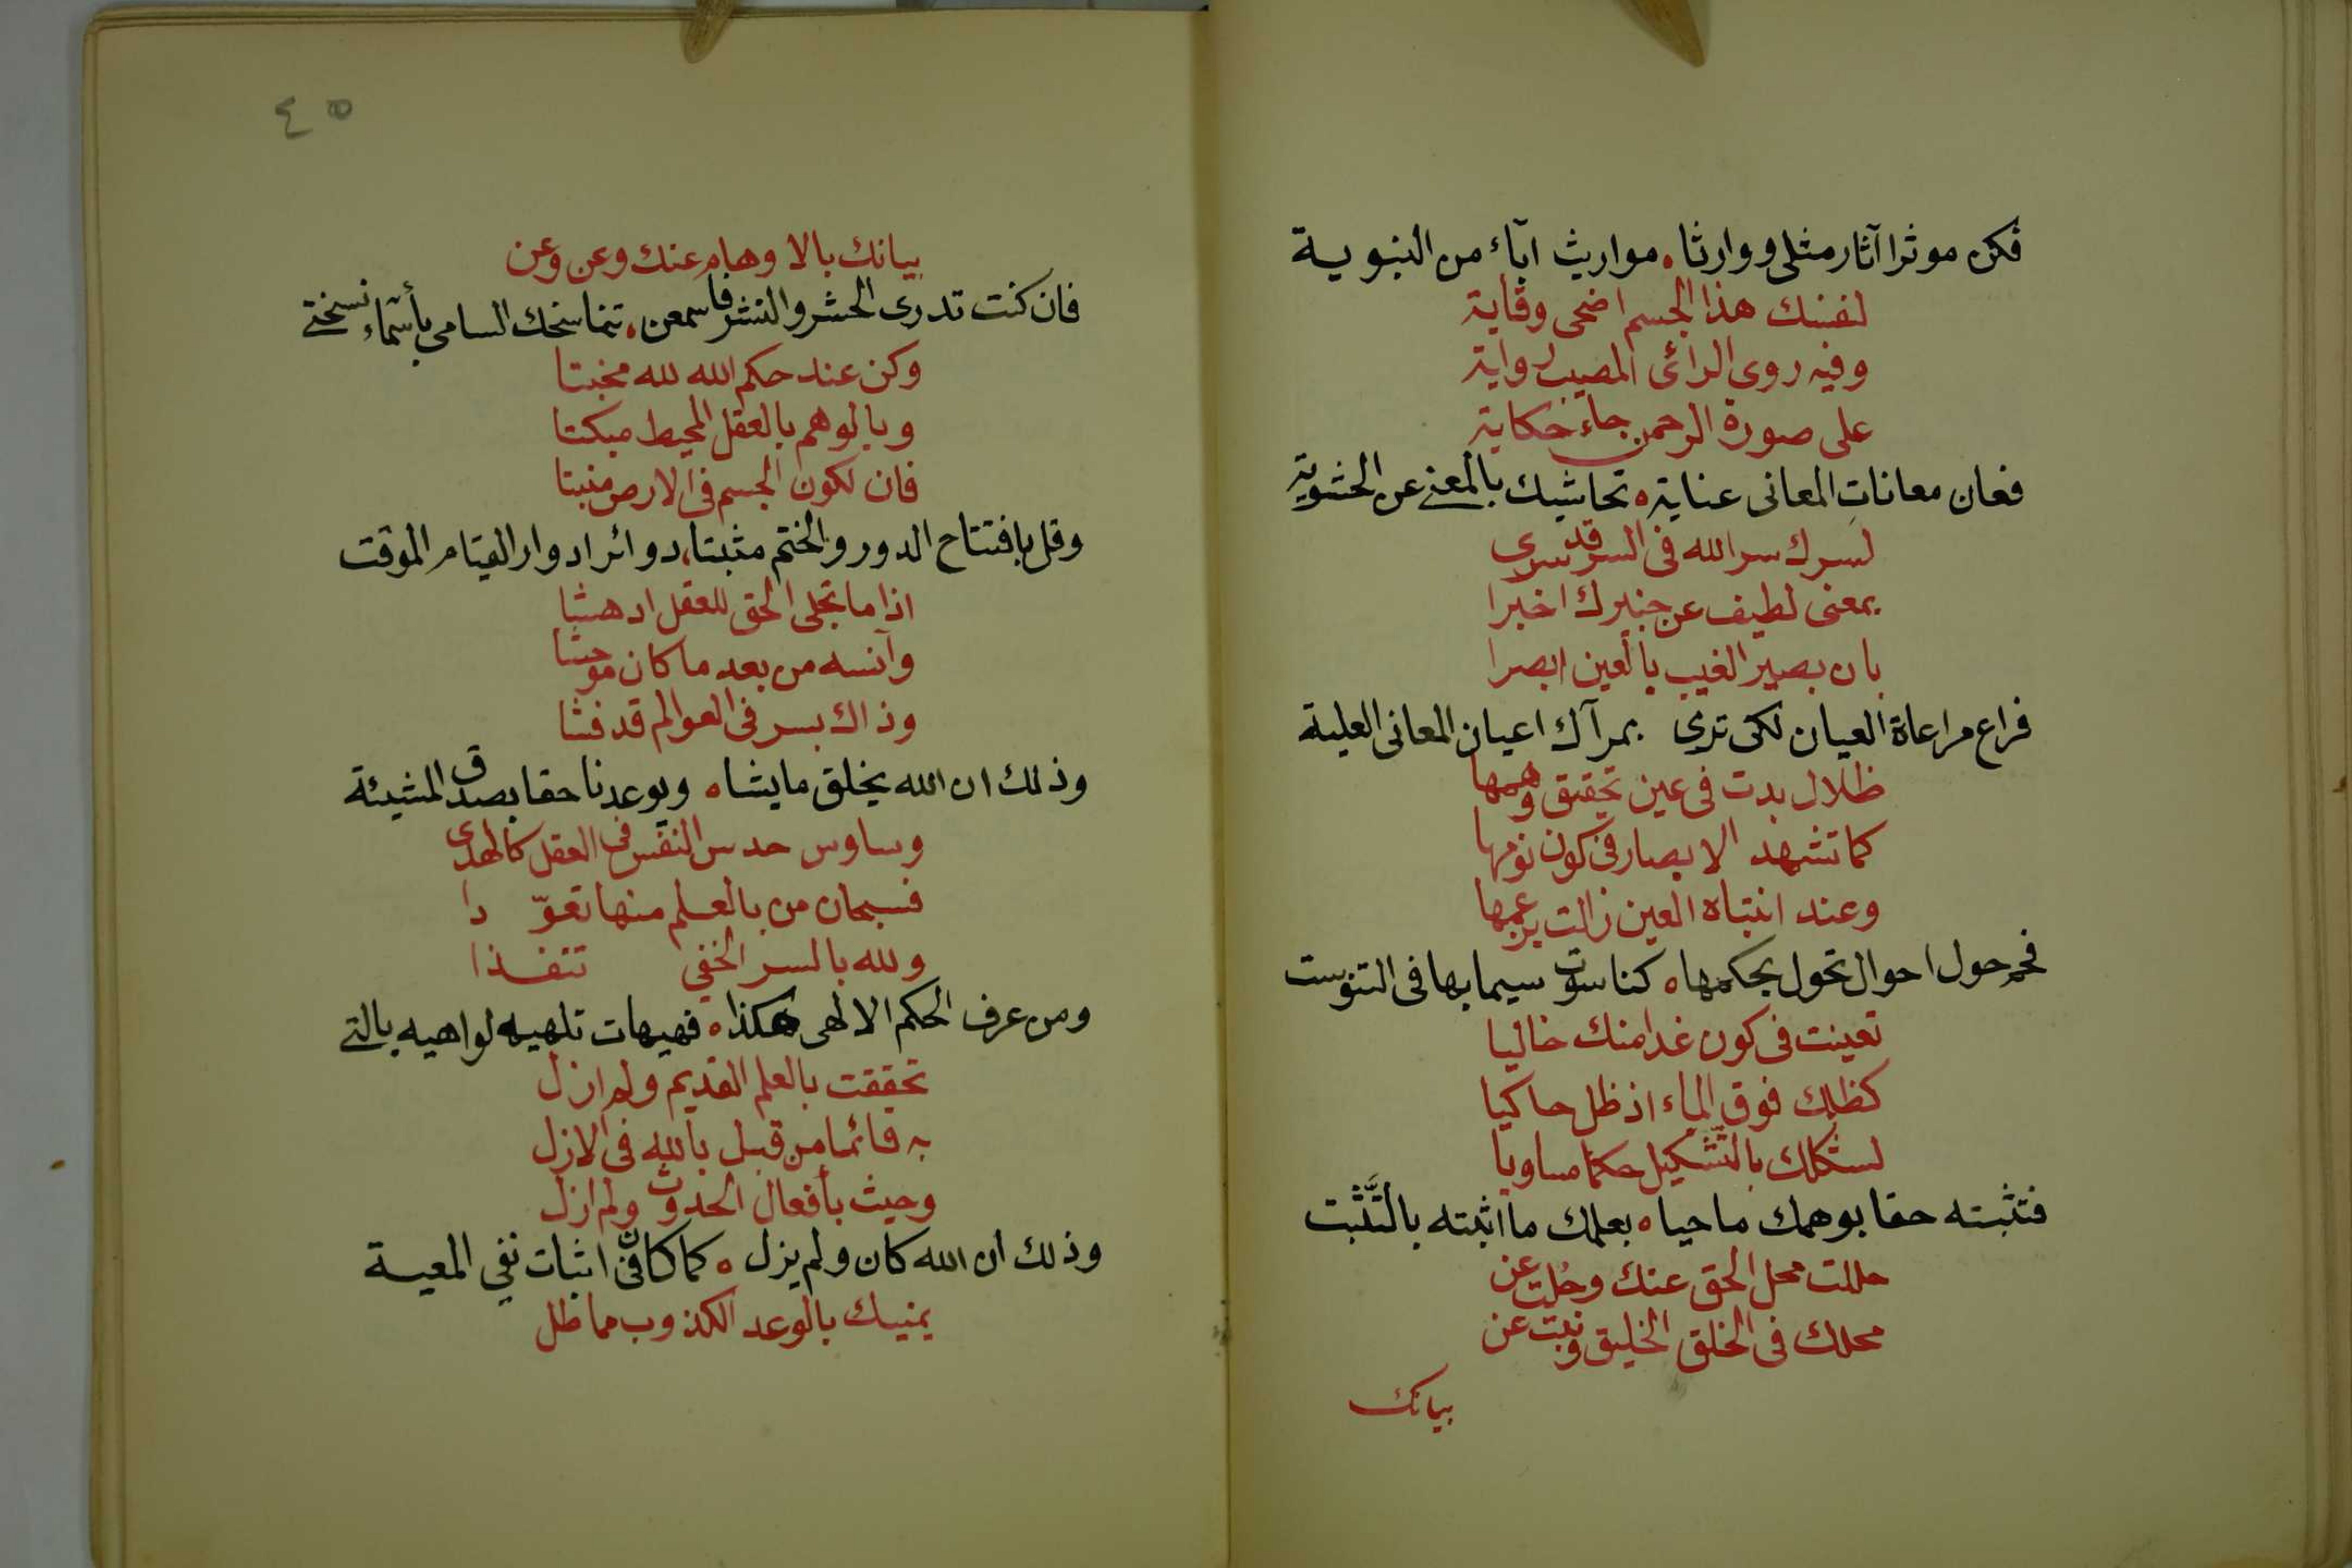 فكن موثرا آثار مثلي ووارثا ه مواريث آباء من النبوية
لنفسك هذا الجسم اضحى وقاية
وفيه روى الرائى المصيب رواية
على صورة الرحمن جاء حكاية
فعان معانات المعانى عناية ه تحاشيك بالمعنى عن الحشوية
لسرك سر الله فى السر قد سرى
بمعنى لطيف عن خبيرك اخبرا
بان بصير الغيب بالعين ابصرا
فراع مراعاة العيان لكى ترى بمرآك اعيان المعانى العلية
ظلال بدت فى عين تحقيق وهمها
كما تشهد الابصار فى كون نومها
وعند انتباه العين زالت بزعمها
فحم حول احوال تحول بحكمها ه كناسوت سيما بها فى التنوست
تعينت فى كون غدا منك خاليا
كظلك فوق الماء اذ ظل حاكيا
لشكلك بالتشكيل حكما مساويا
فتثبته حقا بوهمك ماحيا ه بعلمك ما اثبته بالتَّثبت
حللت محل الحق عنك وحُلت عن
محلك فى الخلق الخليق وبنت عن
بيانك
٤٥
بيانك بالاوهام عنك وعن وعن
فان كنت تدرى الحشر والنشر فاسمعن ه تناسخك السامى بأسماء نسختى
وكن عند حكم الله لله مخبتا
وبالوهم بالعقل المحيط مبكتا
فان لكون الجسم فى الارض منبتا
وقل بافتتاح الدور والختم مثبتا ه دوائر ادوار القيام الموقت
اذا ما تجلى الحق للعقل ادهشا
وآنسه من بعد ما كان موحشا
وذاك بسر فى العوالم قد فشا
وذلك ان الله يخلق ما يشا ه ويوعدنا حقا بصدق المشيئة
وساوس حدس النفس فى العقل كالهدى
فسبحان من بالعلم منها تعوّ دا
ولله بالسر الخفي تنفذا
ومن عرف الحكم الالهى هكذا ه فهيهات تلهيه لواهيه بالتى
تحققت بالعلم القديم ولم ازل
به قائما من قبل بالله فى الازل
وحيث بأفعال الحدوث ولم ازل
وذلك ان الله كان ولم يزل ه كما كان فى اثبات نفي المعية
يمنيك بالوعد الكذوب مماطل